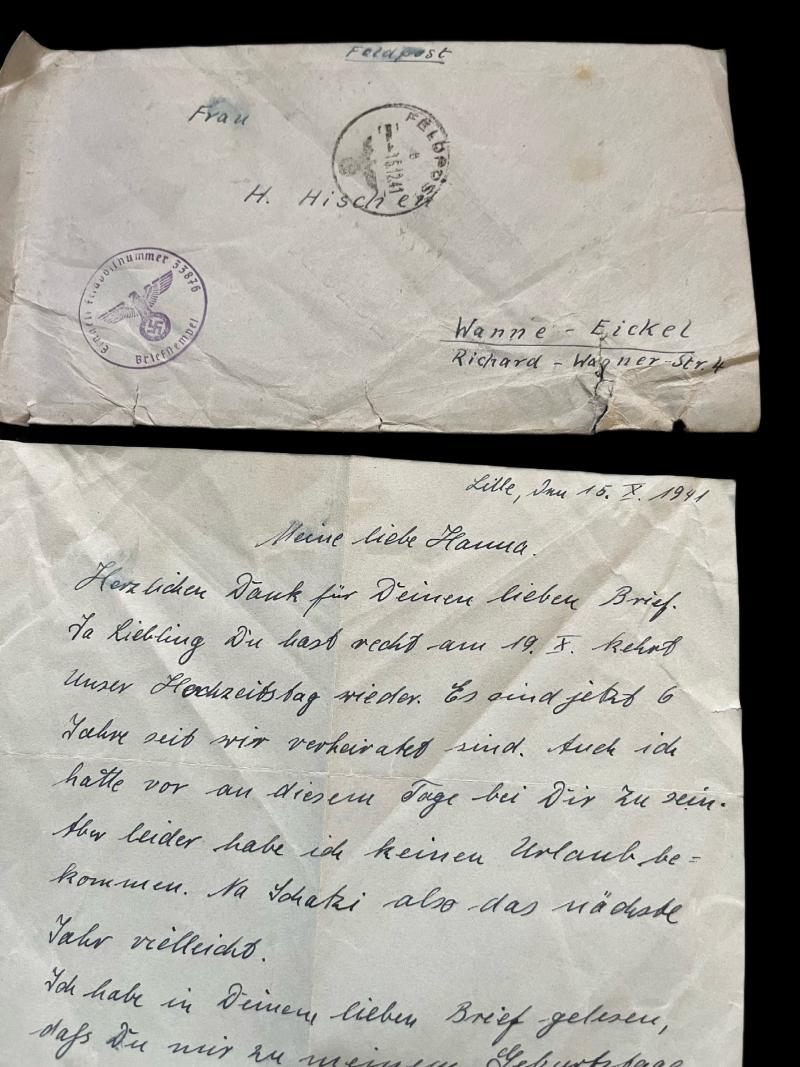 Feldpost
Frau
FELDPOST
b
15.12.41
H. Hischen
Feldpostnummer 33876
Briefstempel
Wanne - Eickel
Richard - Wagner - Str. 4
Lille, den 15. X. 1941
Meine liebe Hanna.
Herzlichen Dank für Deinen lieben Brief.
Ja Liebling Du hast recht am 19. X. kehrt
unser Hochzeitstag wieder. Es sind jetzt 6
Jahre seit wir verheiratet sind. Auch ich
hatte vor an diesem Tage bei Dir zu sein.
Aber leider habe ich keinen Urlaub be=
kommen. Na Schatzi also das nächste
Jahr vielleicht.
Ich habe in Deinem lieben Brief gelesen,
daß Du mir zu meinem Geburtstage